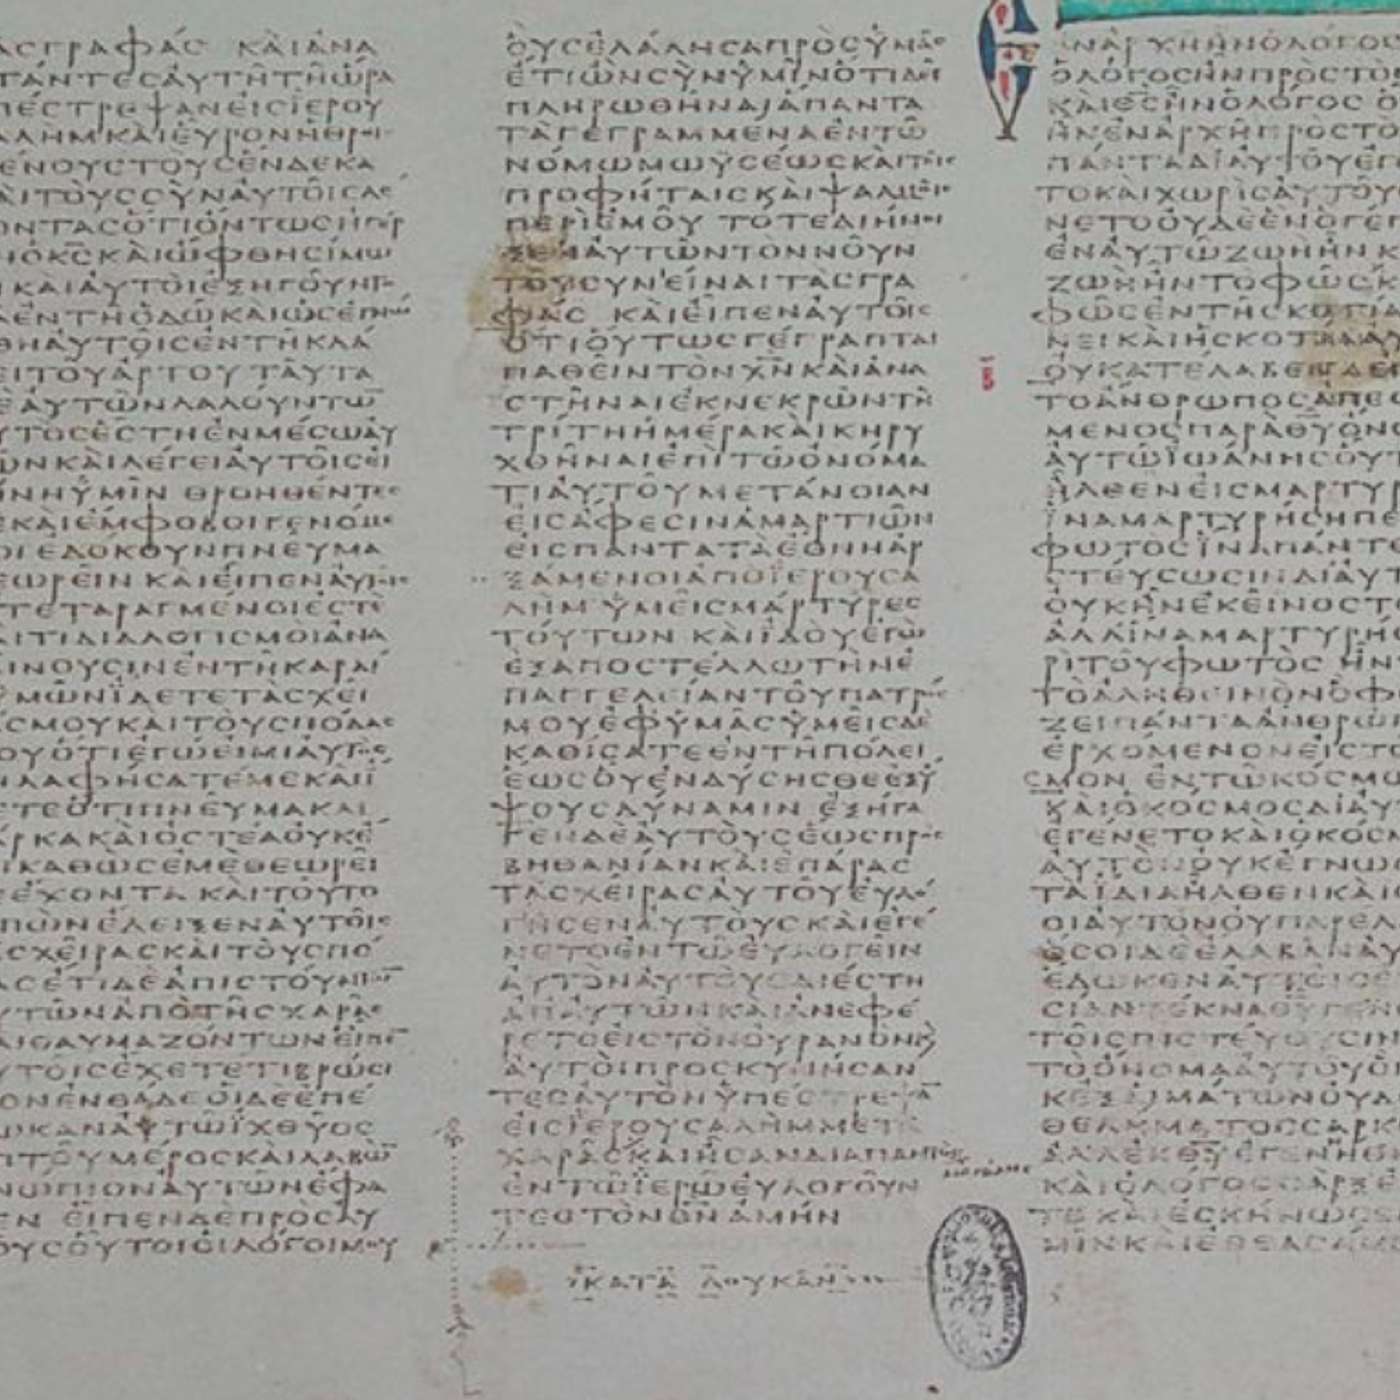 ΑΣΓΡΑΦΑΣ ΚΑΙΑΝΑ
ΤΑΝΤΕΣΑΥΤΗΤΗΩΡΑ
ΠΕΣΤΡΕΨΑΝΕΙΣΙΕΡΟΥ
ΑΛΗΜΚΑΙΕΥΡΟΝΗΘΡΟΙ
ΕΝΟΥΣΤΟΥΣΕΝΔΕΚΑ
ΑΙΤΟΥΣΣΥΝΑΥΤΟΙΣΛΕ
ΟΝΤΑΣΟΤΙΟΝΤΩΣΗΓΕΡ
ΗΟΚΣΚΑΙΩΦΘΗΣΙΜΩ
ΙΚΑΙΑΥΤΟΙΕΞΗΓΟΥΝΤ
ΑΕΝΤΗΟΔΩΚΑΙΩΣΕΓΝΩ
ΘΗΑΥΤΟΙΣΕΝΤΗΚΛΑ
ΕΙΤΟΥΑΡΤΟΥ ΤΑΥΤΑ
ΕΑΥΤΩΝΛΑΛΟΥΝΤΩ
ΥΤΟΣΕΣΤΗΕΝΜΕΣΩΑΥ
ΩΝΚΑΙΛΕΓΕΙΑΥΤΟΙΣΕΙ
ΗΝΗΥΜΙΝ ΘΡΟΗΘΕΝΤΕΣ
ΕΚΑΙΕΜΦΟΒΟΙΓΕΝΟΜΕ
ΟΙΕΔΟΚΟΥΝΠΝΕΥΜΑ
ΕΩΡΕΙΝ ΚΑΙΕΙΠΕΝΑΥΤΟΙΣ
ΤΕΤΑΡΑΓΜΕΝΟΙΕΣΤΕ
ΑΙΤΙΔΙΑΛΟΓΙΣΜΟΙΑΝΑ
ΑΙΝΟΥΣΙΝΕΝΤΗΚΑΡΔΙ
ΥΜΩΝΪΔΕΤΕΤΑΣΧΕΙ
ΑΣΜΟΥΚΑΙΤΟΥΣΠΟΔΑΣ
ΟΥΟΤΙΕΓΩΕΙΜΙΑΥΤΟΣ
ΗΛΑΦΗΣΑΤΕΜΕΚΑΙΪ
ΕΤΕΟΤΙΠΝΕΥΜΑΚΑΙ
ΑΡΚΑΚΑΙΟΣΤΕΑΟΥΚΕ
ΙΚΑΘΩΣΕΜΕΘΕΩΡΕΙ
ΕΕΧΟΝΤΑ ΚΑΙΤΟΥΤΟ
ΠΩΝΕΔΕΙΞΕΝΑΥΤΟΙΣ
ΑΣΧΕΙΡΑΣΚΑΙΤΟΥΣΠΟ
ΑΣΕΤΙΔΕΑΠΙΣΤΟΥΝΤΩ
ΥΤΩΝΑΠΟΤΗΣΧΑΡΑΣ
ΑΙΘΑΥΜΑΖΟΝΤΩΝΕΙΠΕ
ΥΤΟΙΣΕΧΕΤΕΤΙΒΡΩΣΙ
ΟΝΕΝΘΑΔΕΟΙΔΕΕΠΕ
ΩΚΑΝΑΥΤΩΪΧΘΥΟΣ
ΠΤΟΥΜΕΡΟΣΚΑΙΛΑΒΩ
ΝΩΠΙΟΝΑΥΤΩΝΕΦΑ
ΕΝ ΕΙΠΕΝΔΕΠΡΟΣΑΥ
ΟΥΣΟΥΤΟΙΟΙΛΟΓΟΙΜΟΥ
ΟΥΣΕΛΑΛΗΣΑΠΡΟΣΥΜΑΣ
ΕΤΙΩΝΣΥΝΥΜΙΝΟΤΙΔΕΙ
ΠΛΗΡΩΘΗΝΑΙΑΠΑΝΤΑ
ΤΑΓΕΓΡΑΜΜΕΝΑΕΝΤΩ
ΝΟΜΩΜΩΫΣΕΩΣΚΑΙΤΟΙΣ
ΠΡΟΦΗΤΑΙΣΚΑΙΨΑΛΜΟΙΣ
ΠΕΡΙΕΜΟΥ ΤΟΤΕΔΙΗΝΟΙ
ΞΕΝΑΥΤΩΝΤΟΝΝΟΥΝ
ΤΟΥΣΥΝΕΙΝΑΙΤΑΣΓΡΑ
ΦΑΣ ΚΑΙΕΙΠΕΝΑΥΤΟΙΣ
ΟΤΙΟΥΤΩΣΓΕΓΡΑΠΤΑΙ
ΠΑΘΕΙΝΤΟΝΧΝΚΑΙΑΝΑ
ΣΤΗΝΑΙΕΚΝΕΚΡΩΝΤΗ
ΤΡΙΤΗΗΜΕΡΑΚΑΙΚΗΡΥ
ΧΘΗΝΑΙΕΠΙΤΩΟΝΟΜΑ
ΤΙΑΥΤΟΥΜΕΤΑΝΟΙΑΝ
ΕΙΣΑΦΕΣΙΝΑΜΑΡΤΙΩΝ
ΕΙΣΠΑΝΤΑΤΑΕΘΝΗΑΡ
ΞΑΜΕΝΟΙΑΠΟΪΕΡΟΥΣΑ
ΛΗΜ ΥΜΕΙΣΜΑΡΤΥΡΕΣ
ΤΟΥΤΩΝ ΚΑΙΪΔΟΥΕΓΩ
ΕΞΑΠΟΣΤΕΛΛΩΤΗΝΕ
ΠΑΓΓΕΛΕΙΑΝΤΟΥΠΑΤΡΟΣ
ΜΟΥΕΦΥΜΑΣΥΜΕΙΣΔΕ
ΚΑΘΙΣΑΤΕΕΝΤΗΠΟΛΕΙ
ΕΩΣΟΥΕΝΔΥΣΗΣΘΕΕΞΥ
ΨΟΥΣΔΥΝΑΜΙΝ ΕΞΗΓΑ
ΓΕΝΔΕΑΥΤΟΥΣΕΩΣΠΡΟΣ
ΒΗΘΑΝΙΑΝΚΑΙΕΠΑΡΑΣ
ΤΑΣΧΕΙΡΑΣΑΥΤΟΥΕΥΛΟ
ΓΗΣΕΝΑΥΤΟΥΣΚΑΙΕΓΕ
ΝΕΤΟΕΝΤΩΕΥΛΟΓΕΙΝ
ΑΥΤΟΝΑΥΤΟΥΣΔΙΕΣΤΗ
ΑΠΑΥΤΩΝΚΑΙΑΝΕΦΕ
ΡΕΤΟΕΙΣΤΟΝΟΥΡΑΝΟΝΚ
ΑΥΤΟΙΠΡΟΣΚΥΝΗΣΑΝ
ΤΕΣΑΥΤΟΝΥΠΕΣΤΡΕΨΑ
ΕΙΣΙΕΡΟΥΣΑΛΗΜΜΕΤΑ
ΧΑΡΑΣΚΑΙΗΣΑΝΔΙΑΠΑΝΤΟΣ
ΕΝΤΩΪΕΡΩΕΥΛΟΓΟΥΝ
ΤΕΣΤΟΝΘΝ ΑΜΗΝ
ΚΑΤΑ ΛΟΥΚΑΝ
ΕΝΑΡΧΗΗΝΟΛΟΓΟΣ
ΟΛΟΓΟΣΗΝΠΡΟΣΤΟ
ΚΑΙΘΣΗΝΟΛΟΓΟΣ Ο
ΗΝΕΝΑΡΧΗΠΡΟΣΤΟ
ΠΑΝΤΑΔΙΑΥΤΟΥΕΓ
ΤΟΚΑΙΧΩΡΙΣΑΥΤΟΥ
ΝΕΤΟΟΥΔΕΕΝΟΓΕ
ΕΝΑΥΤΩΖΩΗΗΝ Κ
ΖΩΗΗΝΤΟΦΩΣ
ΦΩΣΕΝΤΗΣΚΟΤΙΑ
ΝΕΙΚΑΙΗΣΚΟΤΙΑΑΥ
ΟΥΚΑΤΕΛΑΒΕΝ
ΤΟΑΝΘΡΩΠΟΣΑΠΕΣ
ΜΕΝΟΣΠΑΡΑΘΥΟΝΟ
ΑΥΤΩΪΩΑΝΗΣΟΥΤ
ΗΛΘΕΝΕΙΣΜΑΡΤΥΡ
ΪΝΑΜΑΡΤΥΡΗΣΗΠΕ
ΦΩΤΟΣΪΝΑΠΑΝΤΕ
ΣΤΕΥΣΩΣΙΝΔΙΑΥΤ
ΟΥΚΗΝΕΚΕΙΝΟΣΤ
ΑΛΛΪΝΑΜΑΡΤΥΡΗΣ
ΡΙΤΟΥΦΩΤΟΣ ΗΝ
ΤΟΑΛΗΘΕΙΝΟΝΟΦ
ΖΕΙΠΑΝΤΑΑΝΘΡΩ
ΕΡΧΟΜΕΝΟΝΕΙΣΤΟ
ΣΜΟΝ ΕΝΤΩΚΟΣΜΩ
ΚΑΙΟΚΟΣΜΟΣΔΙΑΥ
ΕΓΕΝΕΤΟΚΑΙΟΚΟΣ
ΑΥΤΟΝΟΥΚΕΓΝΩ
ΤΑΪΔΙΑΗΛΘΕΝΚΑΙ
ΟΙΑΥΤΟΝΟΥΠΑΡΕΛ
ΟΣΟΙΔΕΕΛΑΒΑΝΑΥ
ΕΔΩΚΕΝΑΥΤΟΙΣΕ
ΣΙΑΝΤΕΚΝΑΘΥΓΕΝ
ΤΟΙΣΠΙΣΤΕΥΟΥΣΙΝ
ΤΟΟΝΟΜΑΑΥΤΟΥΟ
ΚΕΞΑΙΜΑΤΩΝΟΥΔ
ΘΕΛΗΜΑΤΟΣΣΑΡΚ
ΑΛΛΕΚΘΥΕΓΕΝΗΘΗ
ΚΑΙΟΛΟΓΟΣΣΑΡΞΕ
ΤΟ ΚΑΙΕΣΚΗΝΩΣΕ
ΜΙΝΚΑΙΕΘΕΑΣΑΜ